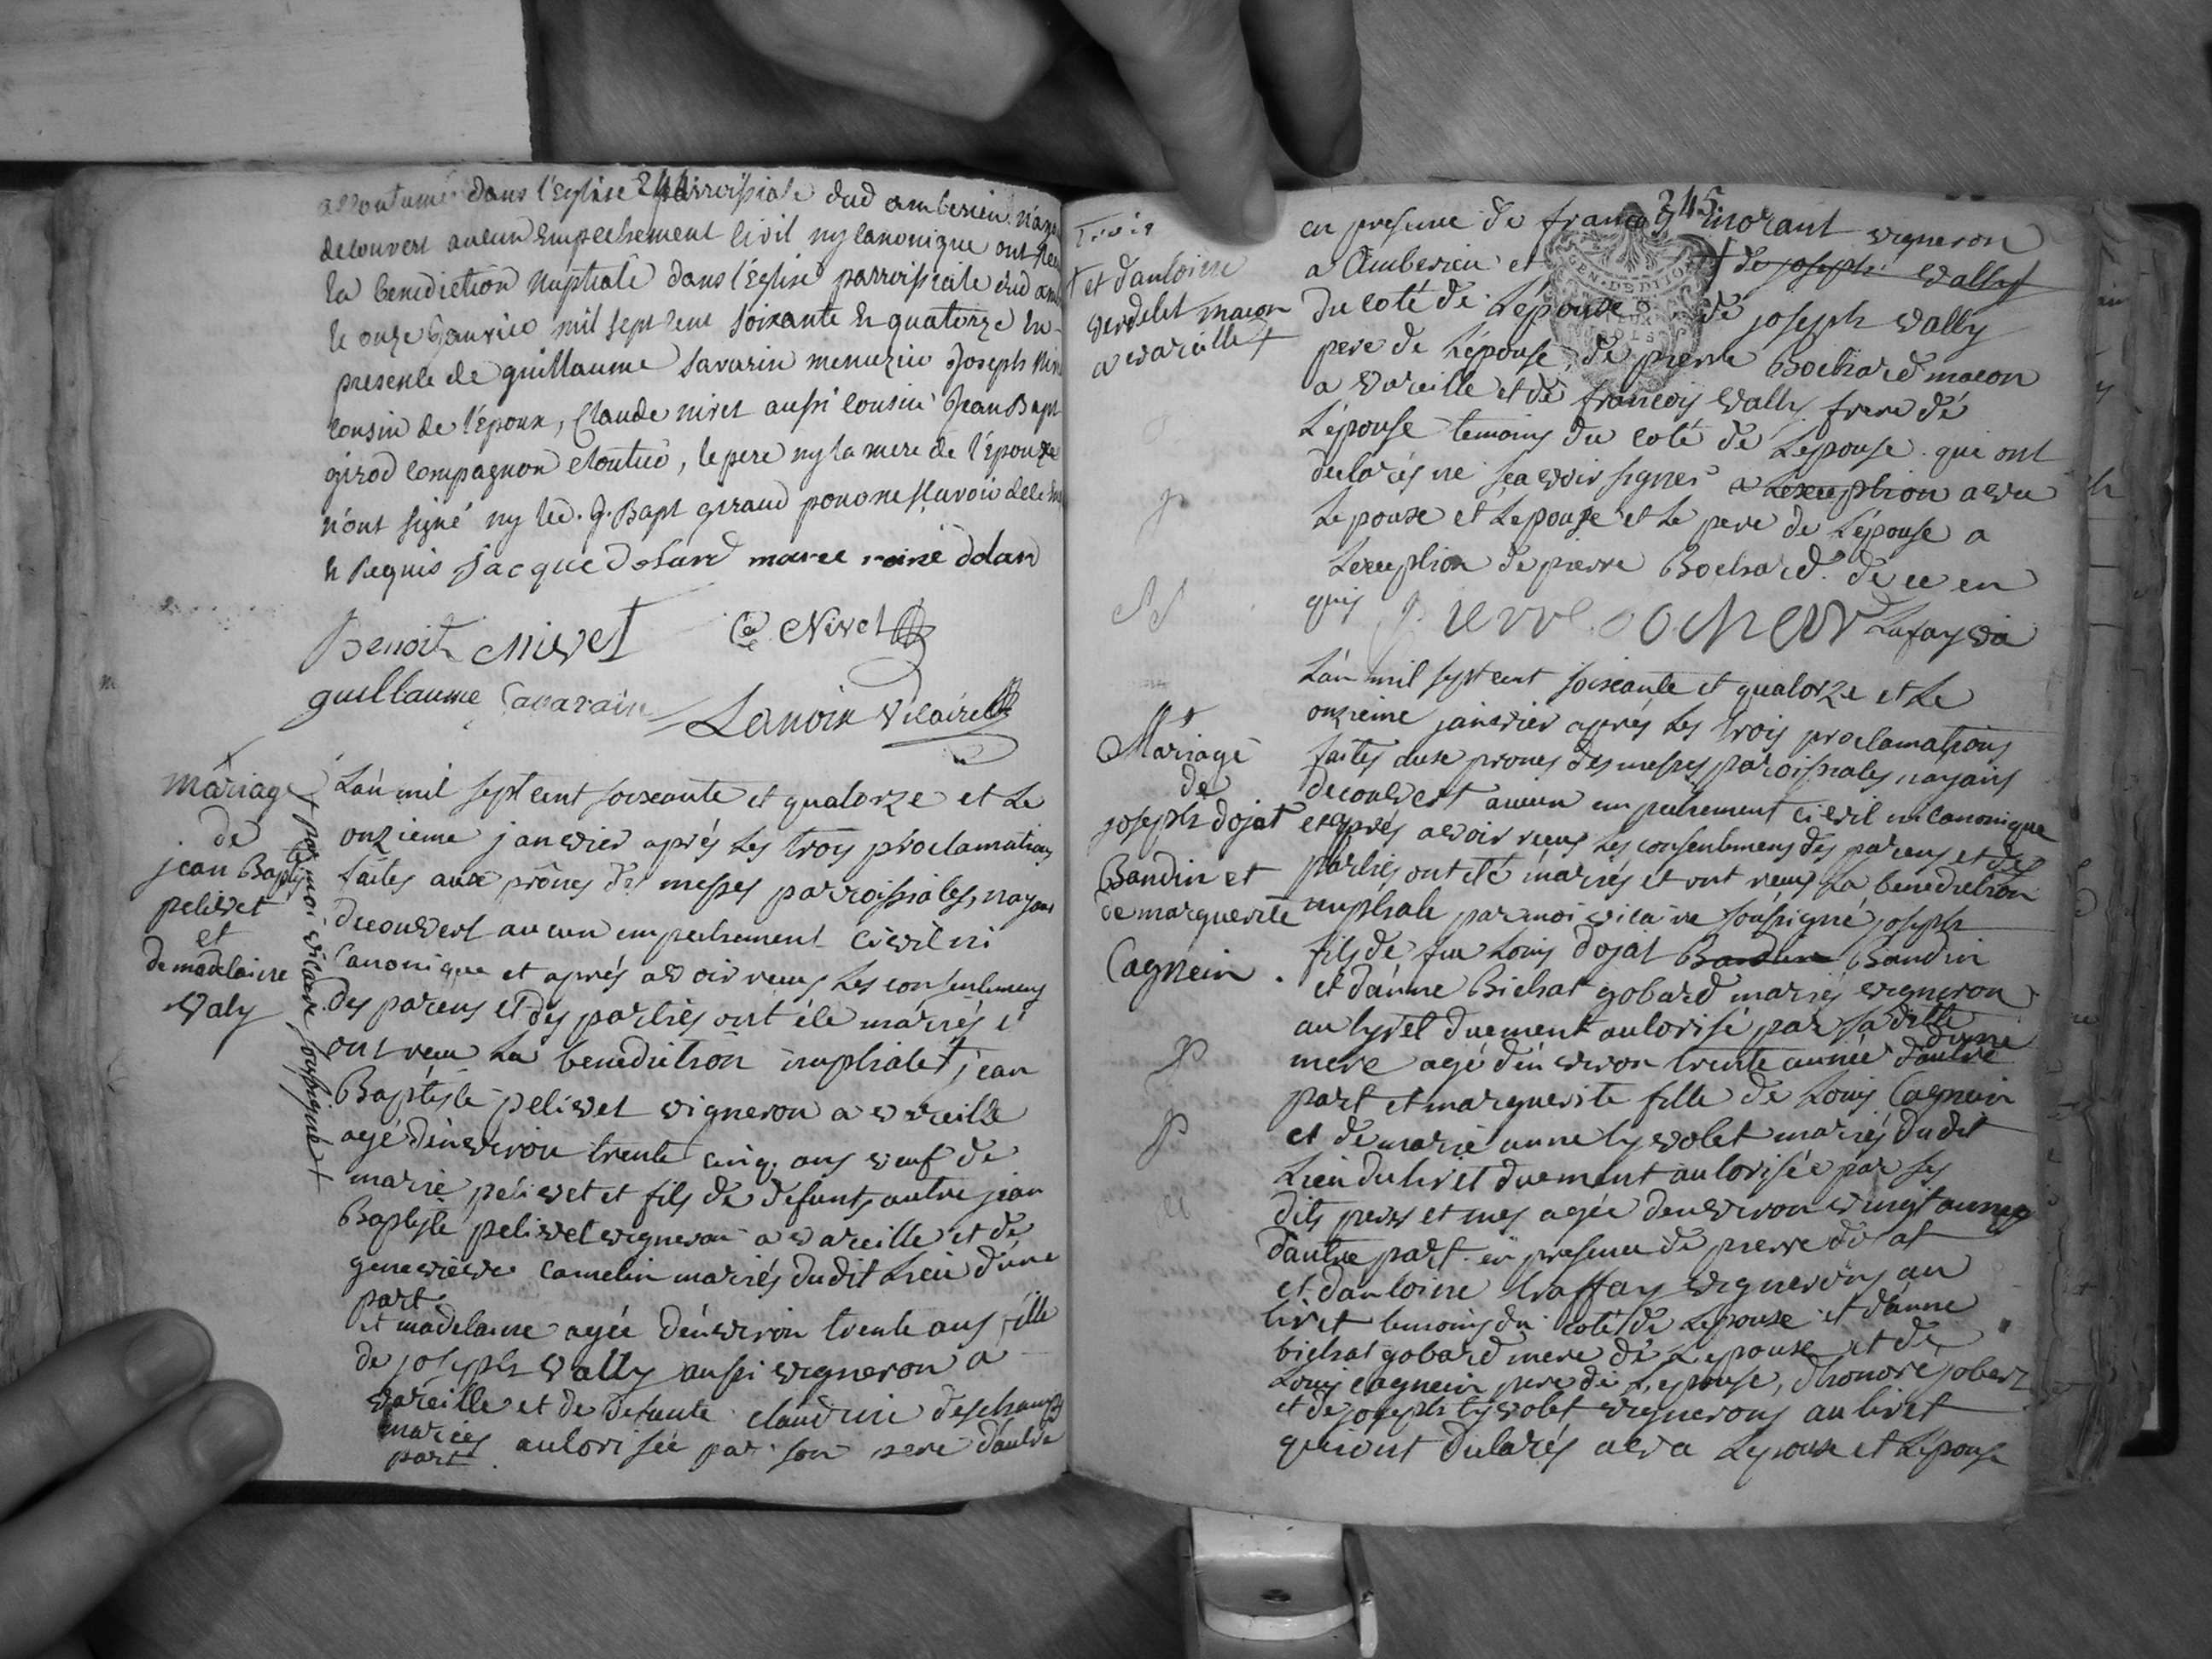 244
accoutumé dans l'Eglise parroissiale dud amberieu n'ayant
decouvert aucun Empechement Civil ny Canonique ont Recu
la benediction nuptiale dans l'Eglise parroissiale dud am
le onze Janvier mil sept cent soixante & quatorze En
presence de guillaume Savarin menuzier Joseph Niv
cousin de l'époux, Claude nivet aussi cousin Jean Bapt
girod compagnon cloutier, le pere ny la mere de l'épouze
n'ont signé ny led. J. Bapt giraud pour ne sçavoir de ce En
& Requis jacque dolard marie reine dolar
Benoit Nivet Cde Nivet
guillaume Savarain Lanoix Vicaire
Mariage
de
jean Baptis
pelivet
et
de madelaine
Valy
L'an mil sept cent soixante et quatorze et Le
onzieme janvier aprés Les trois proclamations
faites aux prônes des messes parroissiales, nayant
decouvert aucun empechement Civil ni
Canonique et aprés avoir recus Les consentemens
des parens et des partiés ont été mariés et
ont recu La benediction nuptiale + jean
Baptiste pelivet vigneron a vareille
agé d'environ trente cinq ans veuf de
marie pelivet et fils de defunts autre jean
Baptiste pelivet vigneron a vareille et de
genevieve Camelin mariés dudit Lieu d'une
part
et madelaine agée d'environ trente ans fille
de joseph Vally aussi vigneron a
vareille et de defunte claudine deschamps
mariés autorisée par son pere d'autre
part
+ par moi vicaire soussigné +
245
+ et d'antoine
verdelet macon
a vareille +
en presence de francois morant vigneron
a Amberieu et + de joseph vally
du coté de L'épouse de joseph Vally
pere de L'épouse, de pierre Bochard macon
a vareille et de francois Vally frere de
L'épouse temoins du coté de L'epouse qui ont
declarés ne sçavoir signer a Lexception avec
Lepoux et Lepouse et Le pere de L'épouse a
Lexception de pierre Bochard. de ce en
quis pierre bochard Lafay via
Mariage
de
joseph dojat
Bandin et
de marguerite
Cagnein
L'an mil sept cent soixante et quatorze et Le
onzieme janvier aprés Les trois proclamations
faites aux prones des messes paroissiales nayant
decouvert aucun empechement Civil ni Canonique
et aprés avoir recus Les consentemens des parens et des
partiés ont été mariés et ont recus La benediction
nuptiale par moi vicaire soussigné joseph
fils de feu Louis dojat Bandin Bandin
et d'anne Bichat gobard mariés vigneron
au lyvet duement autorisé par sa ditte
mere agé d'environ trente année d'une
part et marguerite fille de Louis Cagnein
et de marie anne lyvolet mariés dudit
Lieu du livet duement autorisée par ses
dits peres et mes agée denviron vingt années
d'autre part en presence de pierre dojat
et d'antoine traffay vignerons au
livet temoins du coté de Lepoux et d'anne
bichat gobard mere de Lepoux et de
Louis cagnein pere de L'epouse, d'honoré jobert
et de joseph lyvolet vignerons au livet
qui ont declarés avec Lepoux et L'épouse